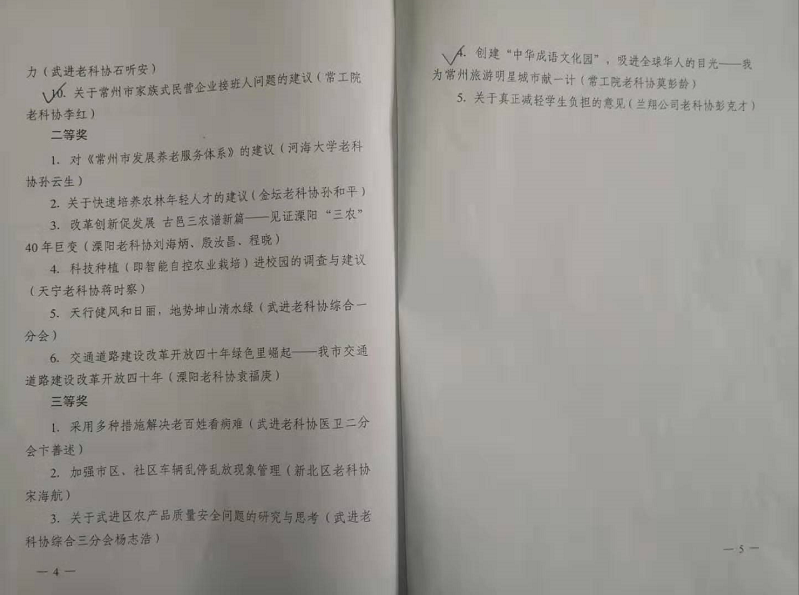 力（武进老科协石听安）
10. 关于常州市家族式民营企业接班人问题的建议（常工院
老科协李红）
二等奖
1. 对《常州市发展养老服务体系》的建议（河海大学老科
协孙云生）
2. 关于快速培养农林年轻人才的建议（金坛老科协孙和平）
3. 改革创新促发展 古邑三农谱新篇——见证溧阳“三农”
40年巨变（溧阳老科协刘海炳、殷汝昌、程晓）
4. 科技种植（即智能自控农业栽培）进校园的调查与建议
（天宁老科协蒋时察）
5. 天行健风和日丽，地势坤山清水绿（武进老科协综合一
分会）
6. 交通道路建设改革开放四十年绿色里崛起——我市交通
道路建设改革开放四十年（溧阳老科协袁福庚）
三等奖
1. 采用多种措施解决老百姓看病难（武进老科协医卫二分
会卞善述）
2. 加强市区、社区车辆乱停乱放现象管理（新北区老科协
宋海航）
3. 关于武进区农产品质量安全问题的研究与思考（武进老
科协综合三分会杨志浩）
— 4 —
4. 创建“中华成语文化园”，吸进全球华人的目光——我
为常州旅游明星城市献一计（常工院老科协莫彭龄）
5. 关于真正减轻学生负担的意见（兰翔公司老科协彭克才）
— 5 —